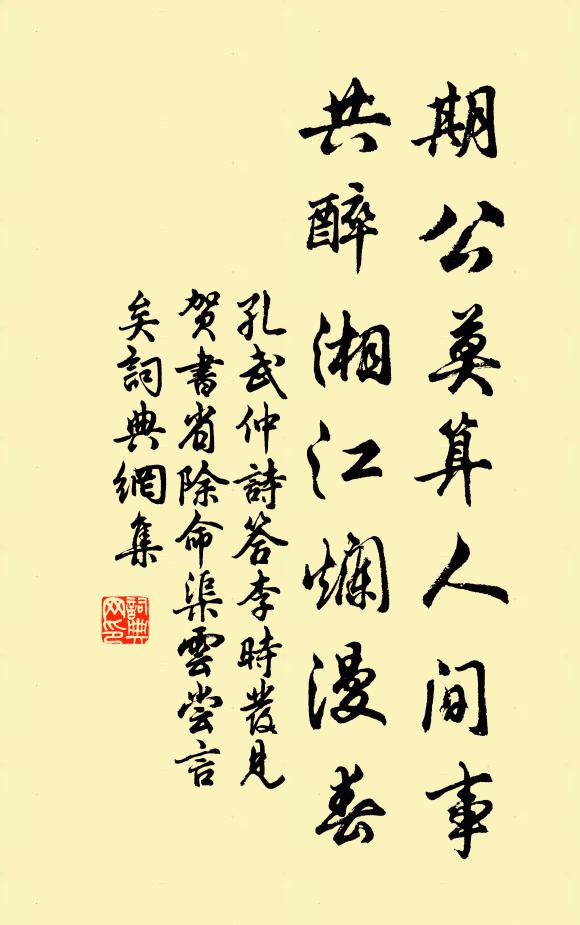 期公莫算人间事
共醉湘江爛漫春
孔武仲詩答李時發見
贺書省除命渠雲尝言
矣詞典網集
詞典网印